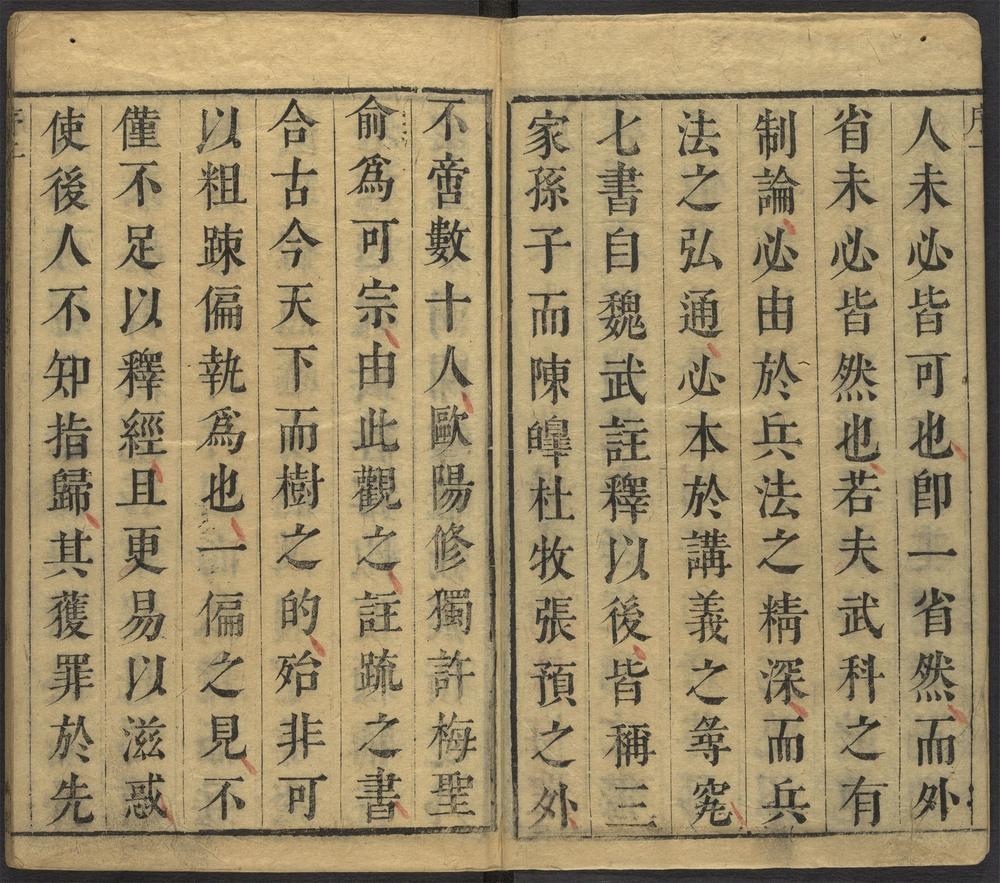 人未必皆可也卽一省然而外
省未必皆然也若夫武科之有
制論必由於兵法之精深而兵
法之弘通必本於講義之尋究
七書自魏武註釋以後皆稱三
家孫子而陳皥杜牧張預之外
不啻數十人歐陽修獨許梅聖
俞爲可宗由此觀之註疏之書
合古今天下而樹之的殆非可
以粗踈偏執爲也一偏之見不
僅不足以釋經且更易以滋惑
使後人不知指歸其獲罪於先